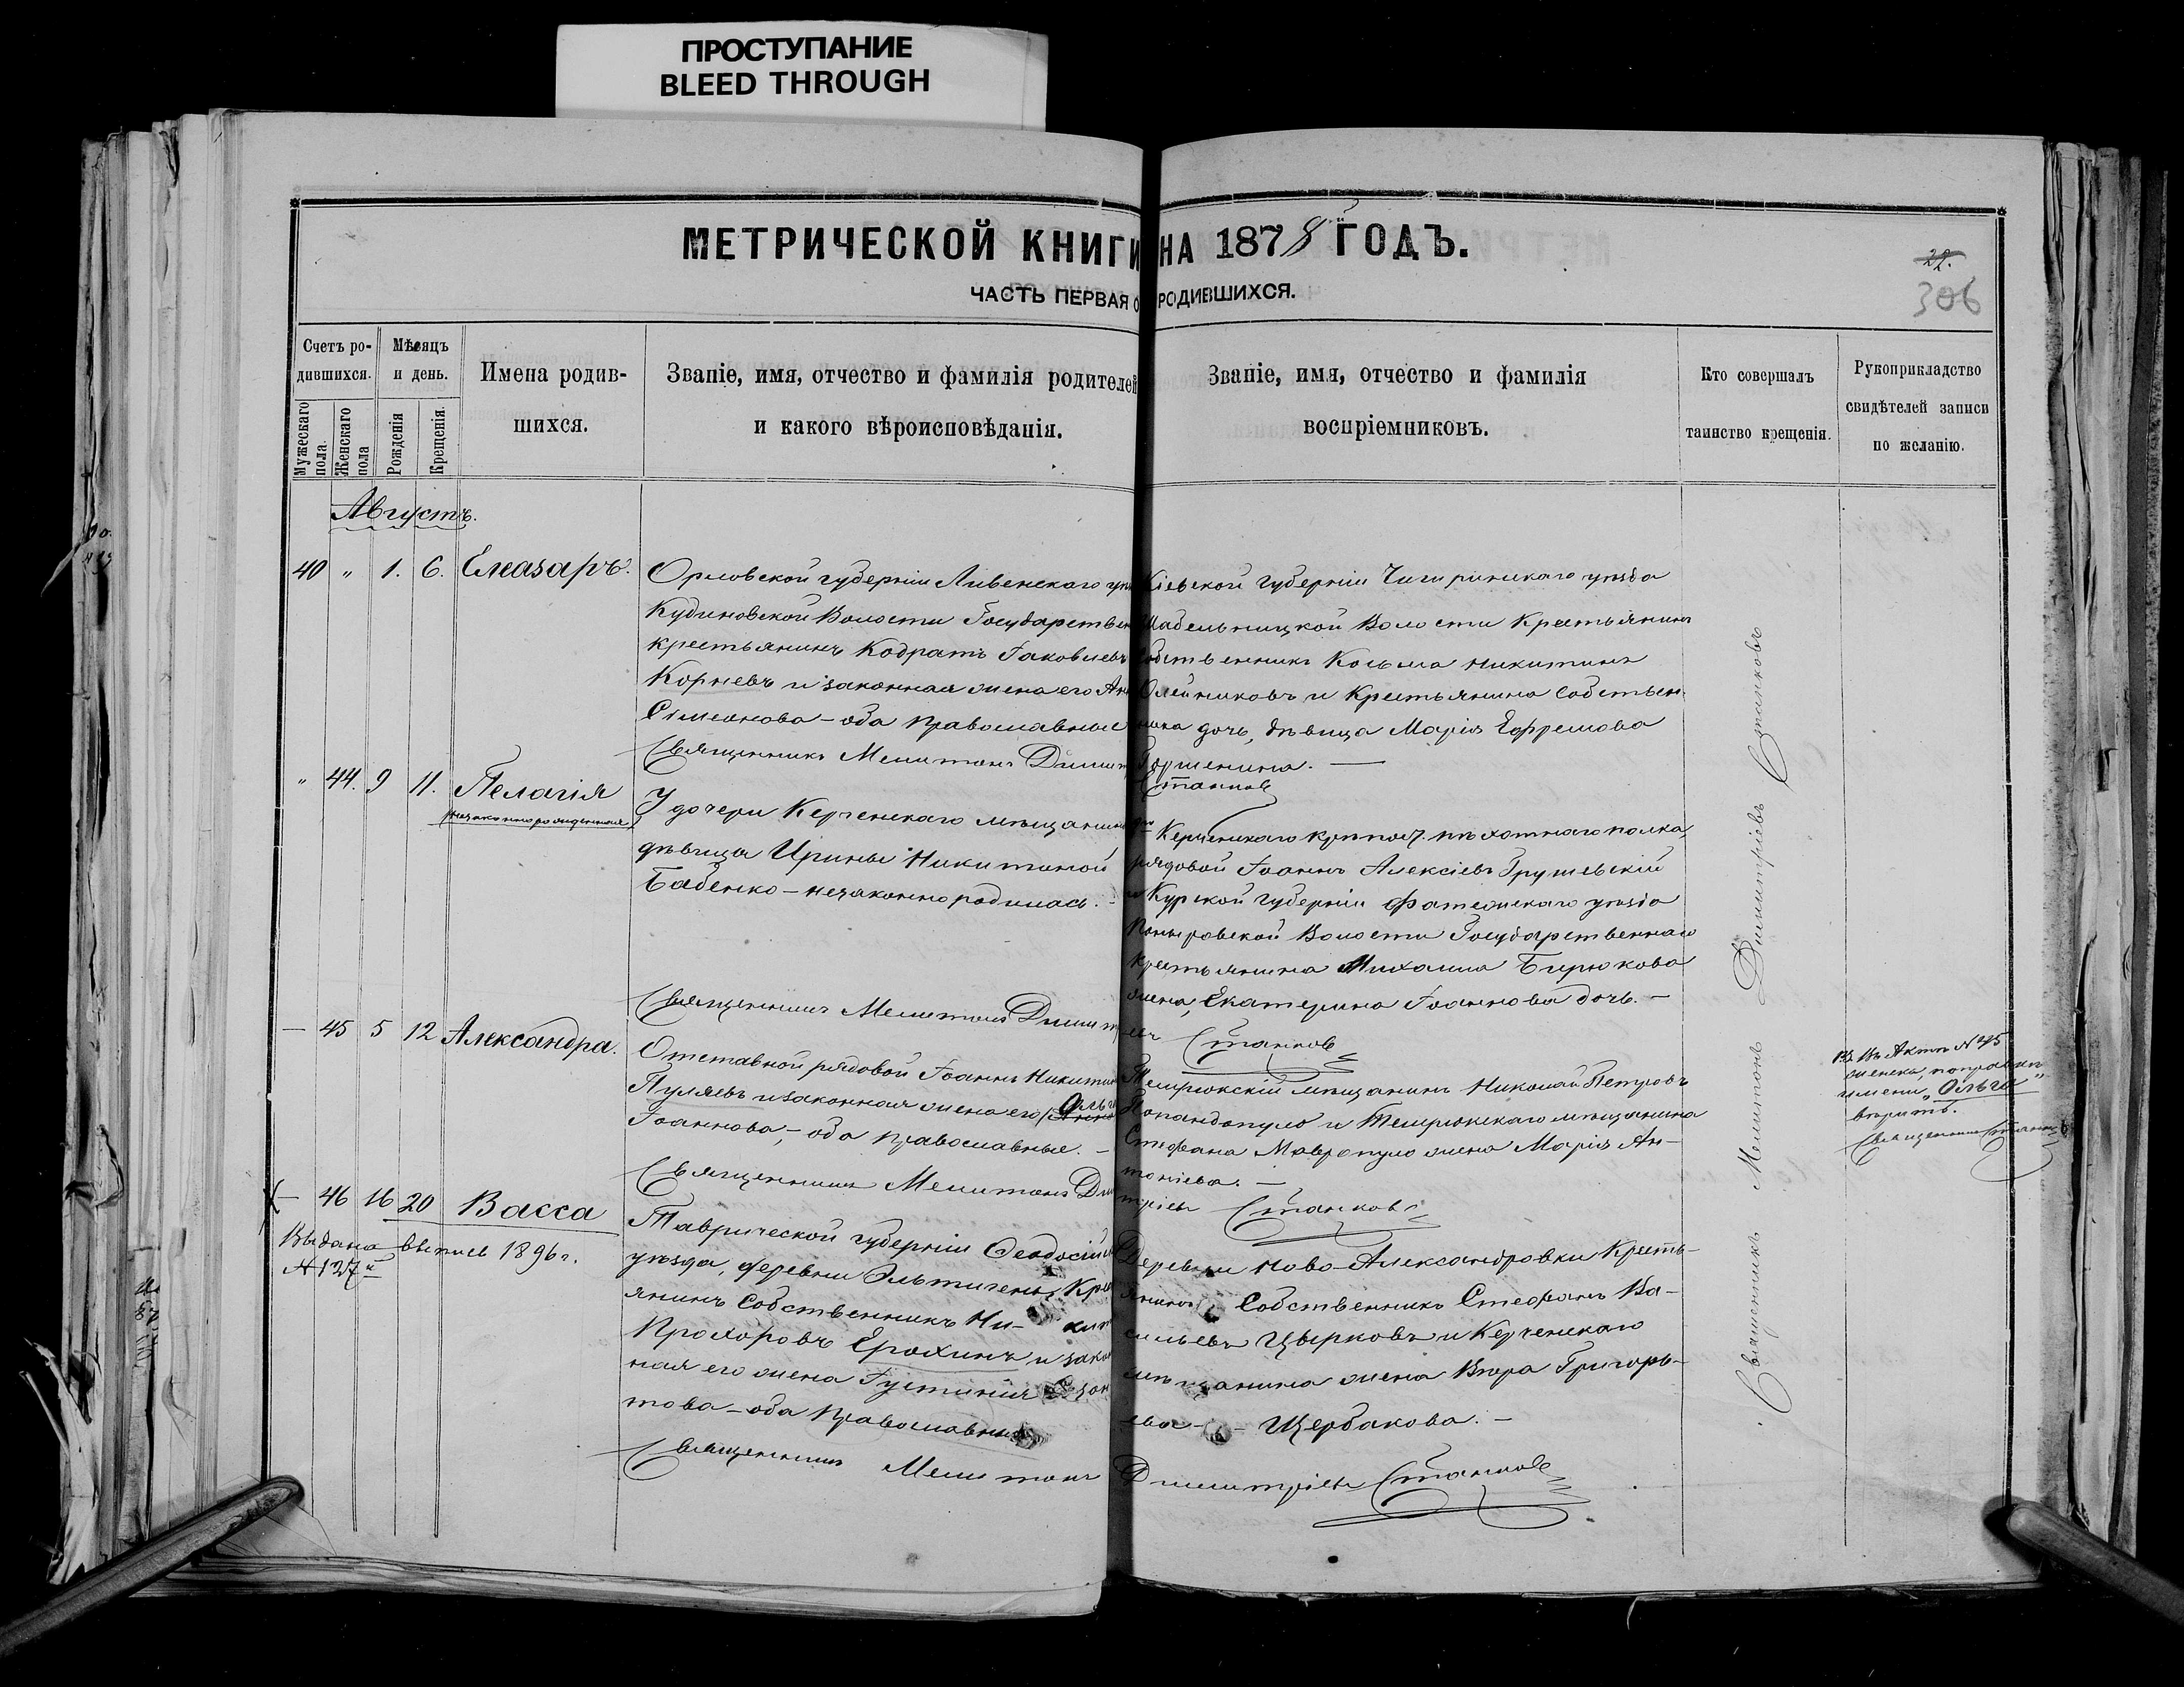 ПРОСТУПАНИЕ
BLEED THROUGH
МЕТРИЧЕСКОЙ КНИГИ НА 1878 ГОДЪ.
ЧАСТЬ ПЕРВАЯ О РОДИВШИХСЯ.
22.
306
Счетъ ро-
дившихся.
Мужескаго
пола.
Женскаго
пола
Мѣсяцъ
и день.
Рожденія
Крещенія.
Имена родив-
шихся.
Званіе, имя, отчество и фамилія родителей
и какого вѣроисповѣданія.
Званіе, имя, отчество и фамилія
воспріемниковъ.
Кто совершалъ
таинство крещенія.
Рукоприкладство
свидѣтелей записи
по желанію.
Августъ.
40 " 1. 6. Елеазаръ.
Орловской губерніи Ливенскаго
Кудиновской Волости Государствен
крестьянинъ Кодратъ Іаковлевъ
Корневъ и законная жена его
Сімеонова - оба православные
Священникъ Мелитонъ Димит
Кіевской губерніи Чигиринскаго уѣзда
Шабельницкой Волости Крестьянинъ
Собственникъ Козьма Никитинъ
Олейниковъ и Крестьянина Собствен-
ника дочь, дѣвица Марія Ефремова
Станков
" 44. 9 11. Пелагія
незаконнорожденная
У дочери Керченскаго мѣщанина
дѣвицы Ирины Никитиной
Бабенко - незаконно родилась. -
Священникъ Мелитонъ Димит
Керченскаго крѣпост. пѣхотнаго полка
рядовой Іоаннъ Алексіевъ Грушевскій
и Курской губерніи Фатежскаго уѣзда
Поныровской Волости Государственнаго
крестьянина Михаила Бирюкова
жена, Екатерина Іоаннова дочь. -
Станков
- 45 5 12 Александра.
Отставной рядовой Іоаннъ Никитинъ
Пуляевъ и законная жена его Ольга
Іоаннова, - оба православные. -
Священникъ Мелитонъ Ди
Темрюкскій мѣщанинъ Николай Петровъ
Попандопуло и Темрюкскаго мѣщанина
Стефана Мавропуло жена Марія Ан-
тоніева. -
тріевъ Станков
Въ Актѣ № 45
женска, поправкѣ
имени "Ольги"
вѣрить.
Священникъ Станков
- 46 16 20 Васса
Выдана выпись 1896 г.
№ 127
Таврической губерніи Ѳеодосій
уѣзда, деревни Эльтигенъ, Кре
янинъ Собственникъ Ни- кит
Прохоровъ Ерохинъ и закон
ная его жена Іустинія
това - оба православные
Священникъ Мелитонъ
Деревни Ново-Александровки Кресть-
янинъ Собственникъ Стефанъ Ва-
сильевъ Цырковъ и Керченскаго
мѣщанина жена Вѣра Григорь-
ева - Щербакова. -
Димитріевъ Станков
Священникъ Мелитонъ Димитріевъ Станковъ